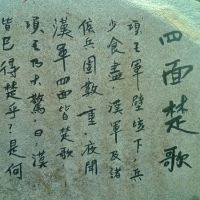 四面楚歌
項王軍壁垓下，兵
少食盡，漢軍及諸
侯兵圍數重。夜聞
漢軍四面皆楚歌，
項王乃大驚，曰，漢
皆已得楚乎？是何